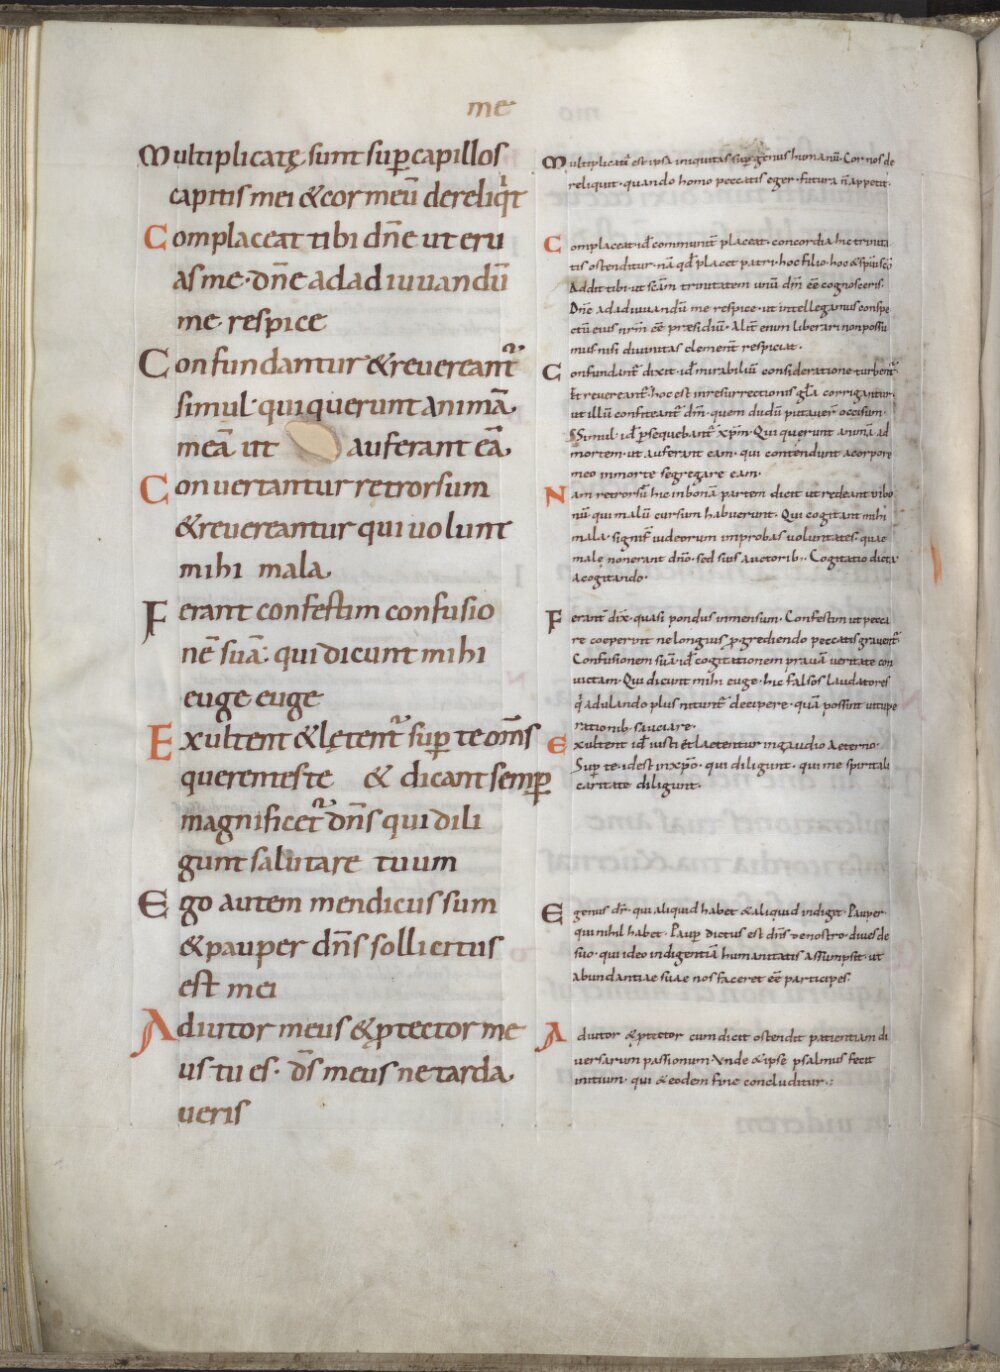 me
Multiplicatę sunt sup̱ capillos
capitis mei & cor meū dereliqͥt
Complaceat tibi dn̄e ut eru
as me · dn̄e ad adiuuandū
me respice
Confundantur & reuereant᷑
simul · qui querunt animā
meā ut auferant eā
Conuertantur retrorsum
& reuereantur qui uolunt
mihi mala
Ferant confestim confusio
nē suā · qui dicunt mihi
euge euge
Exultent & lętent᷑ sup̱ te om̄s
querentes te & dicant semp̱
magnificet᷑ dn̄s qui dili
gunt salutare tuum
Ego autem mendicus sum
& pauper dn̄s sollicitus
est mei
Adiutor meus & ꝓtector me
us tu es · ds̄ meus ne tarda
ueris
Multiplicati est ipsa iniquitas sup̱ genus humanū · Cor nos de
reliquit · quando homo peccatis eger · futura n̄ appetit ·
Complaceat · id̄ communit᷑ placeat · concordia hic trinita
tis ostenditur · nā qd̄ placet patri · hoc filio · hoc & sp̄ui sc̄o
Addit tibi · ut sc̄am trinitatem unū dm̄ eē cognosceris ·
Dn̄e ad adiuuandū me respice · ut intellegamus conspe
ctū eius nr̄m eē praesidiū · Alit᷑ enim liberari non possu
mus nisi diuinitas clement᷑ respiciat ·
Confundant᷑ dixit · id̄ mirabiliū consideratione turbent᷑ ·
Et reuereant᷑ · hoc est in resurrectionis gl̄a corrigantur ·
ut illū confiteant᷑ dm̄ · quem dudū putauer̄ occisum ·
Simul · id̄ ꝑsequebant᷑ xp̄m · Qui querunt animā ad
mortem · ut auferant eam · qui contendunt a corpore
meo in morte segregare eam ·
Nam retrorsū hic in bonā partem dicit ut redeant ut bo
nū · qui malū cursum habuerunt · Qui cogitant mihi
mala · signif̄ iudeorum improbas uoluntates · quae
male non erant dn̄o · sed suis auctorib · Cogitatio dicta
a cogitando ·
Ferant᷑ dix̄ · quasi pondus inmensum · Confestim ut pecca
re coeperint ne longius ꝓgrediendo peccatis grauent᷑
Confusionem suā · id̄ cogitationem prauā ueritate con
uictam · Qui dicunt mihi euge · hic falsos laudatores
qͥ adulando plus nitunt᷑ decipere · quā possint uitupe
rationib sauciare ·
Exultent id̄ iusti & laetentur in gaudio aeterno ·
Sup̱ te · id est in xp̄o · qui diligunt · qui me spiritali
caritate diligunt ·
Egenus dr̄ · qui aliquid habet & aliquid indigit · Pauper ·
qui nihil habet · Paup̱ dictus est dn̄s de nostro · diues de
suo · qui ideo indigentiā humanitatis assumpsit · ut
abundantiae suae nos faceret eē participes ·
Adiutor & ꝓtector cum dicit ostendit patientiam di
uersarum passionum · Vnde & ipse psalmus fecit
initium · qui & eodem fine concluditur · :